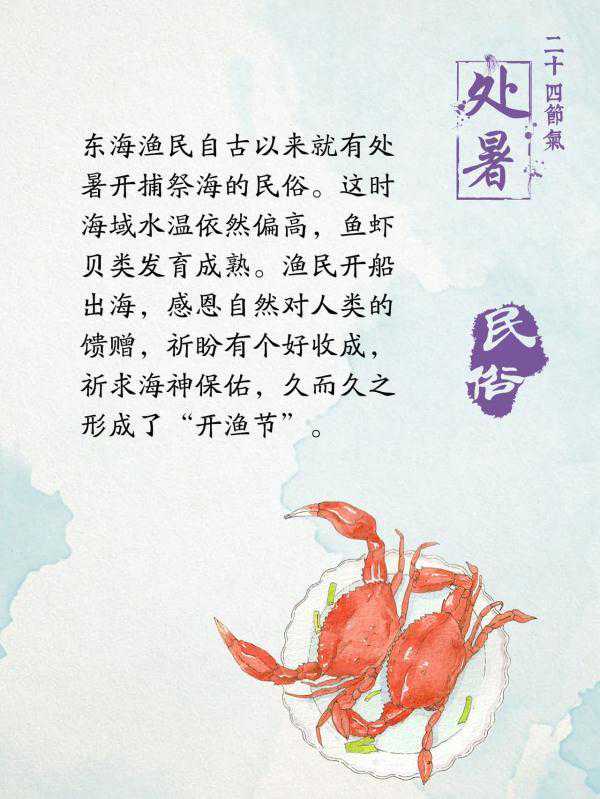 二十四節氣
处暑
民俗
东海渔民自古以来就有处
暑开捕祭海的民俗。这时
海域水温依然偏高，鱼虾
贝类发育成熟。渔民开船
出海，感恩自然对人类的
馈赠，祈盼有个好收成，
祈求海神保佑，久而久之
形成了“开渔节”。